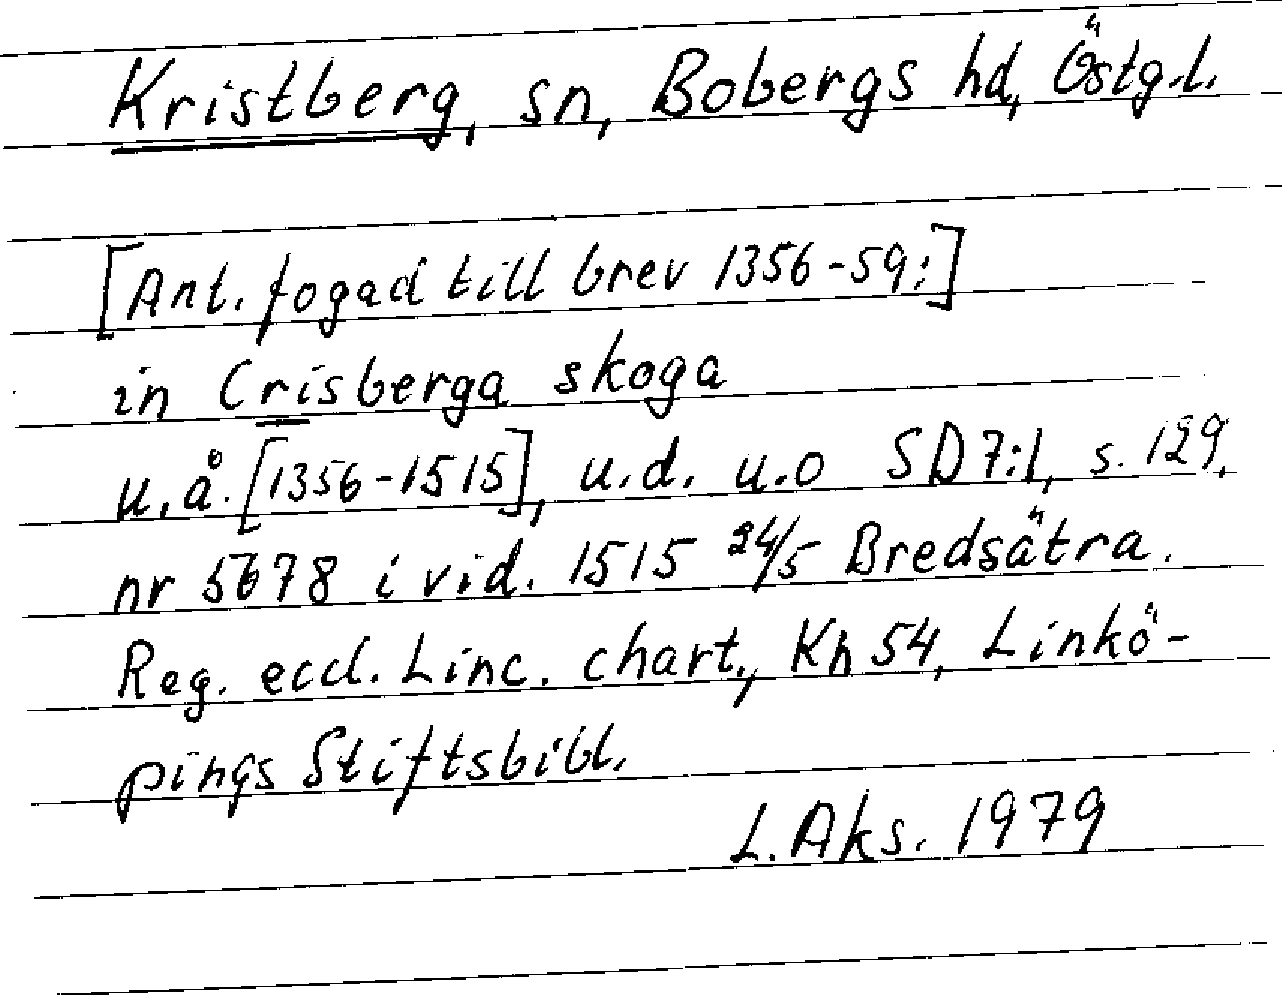 Kristberg, sn, Bobergs hd, Östg.l.
[Ant. fogad till brev 1356-59:]
in Crisberga skoga
u.å. [1356-1515], u.d. u.o SD 7:1, s. 129,
nr 5678 i vid. 1515 24/5 Bredsätra.
Reg. eccl. Linc. chart., Kh 54, Linkö-
pings Stiftsbibl.
L. Aks. 1979